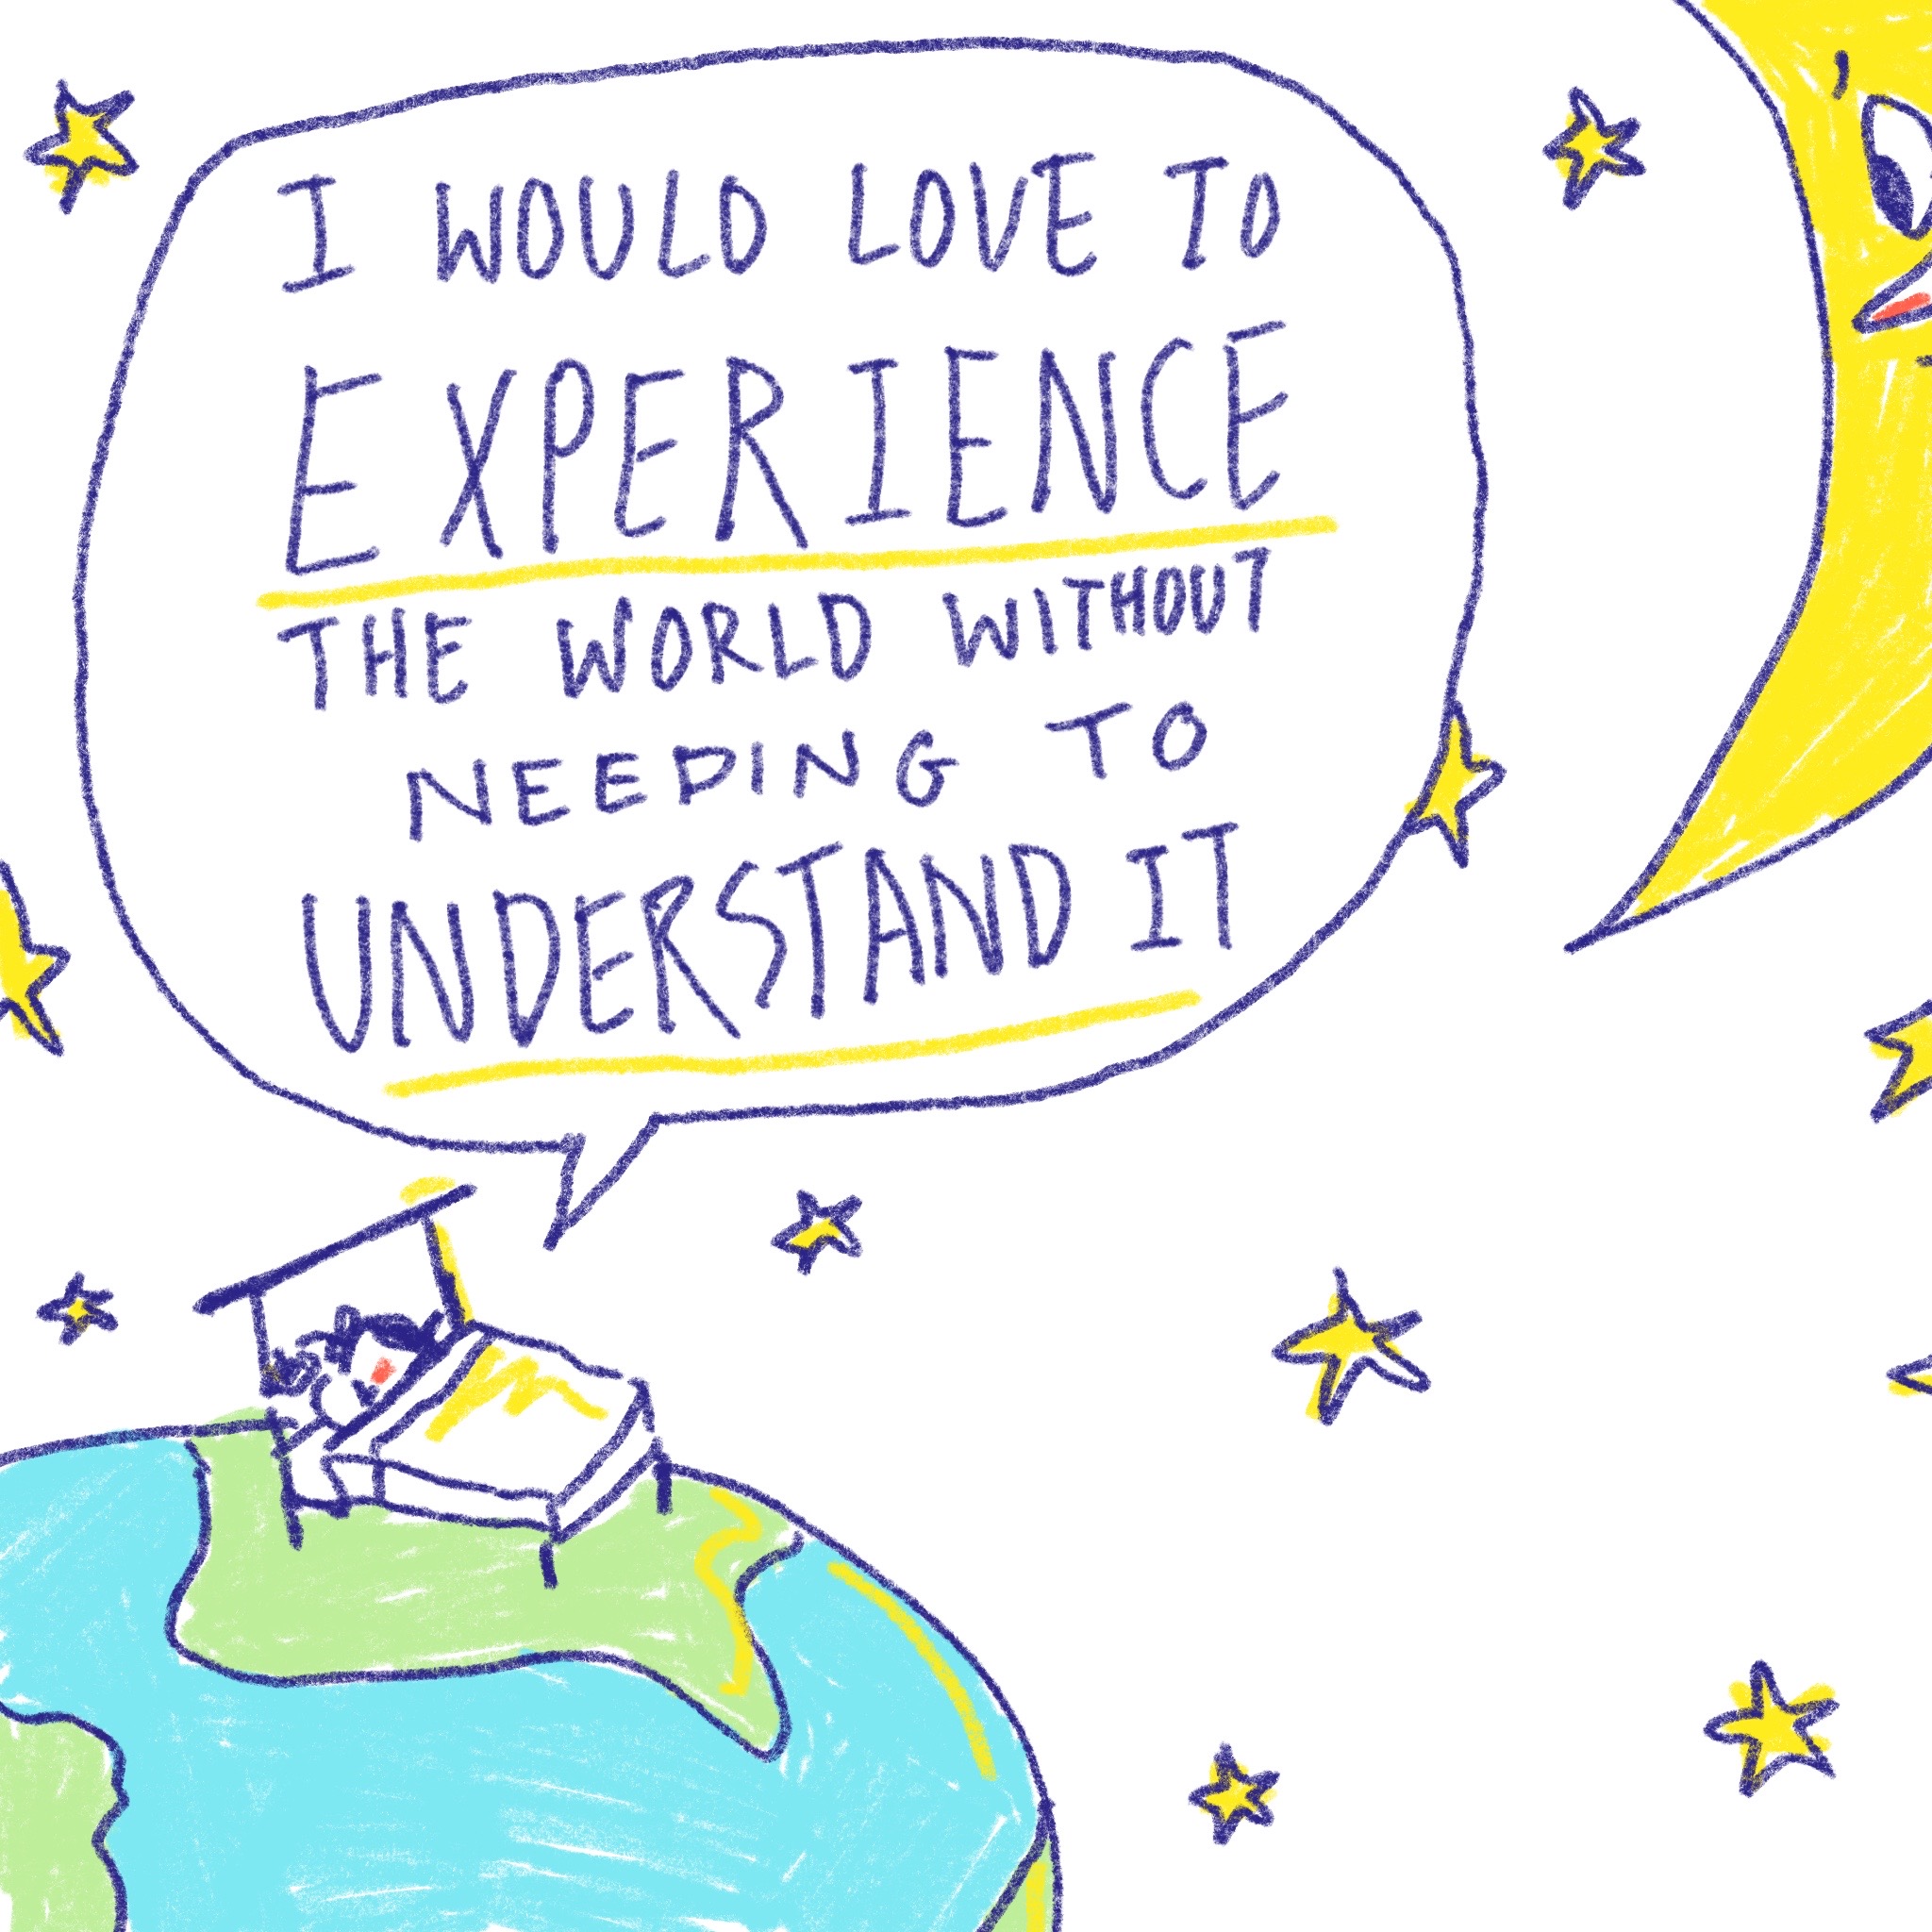 I WOULD LOVE TO
EXPERIENCE
THE WORLD WITHOUT
NEEDING TO
UNDERSTAND IT